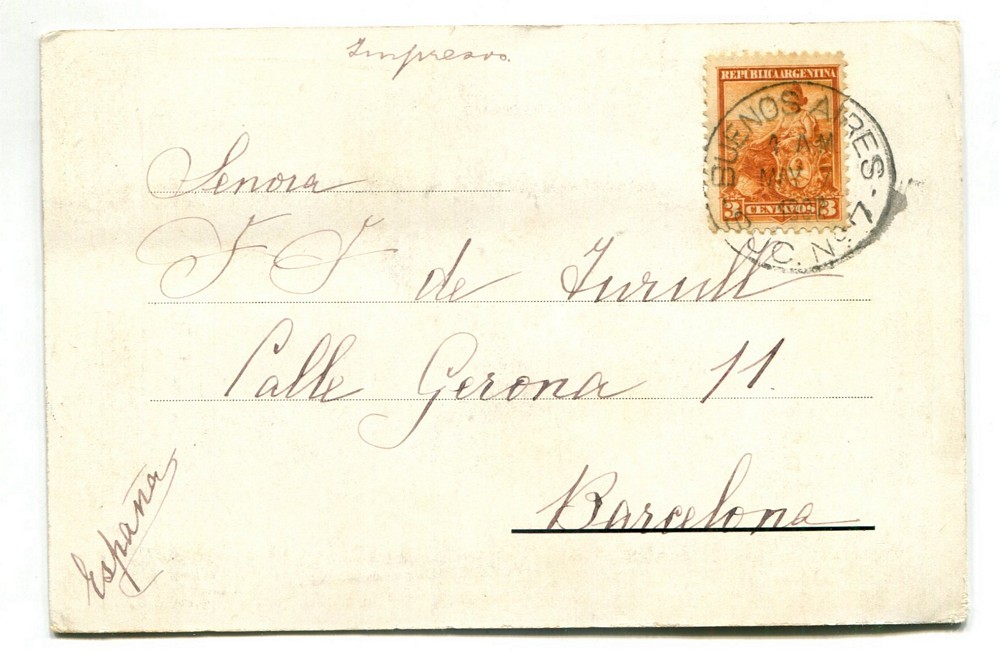 Impresos.
REPÚBLICA ARGENTINA
3 CENTAVOS 3
BUENOS AIRES
1 AM
MAY 7
SUC. No. 17
Senora
F F de Turull
Calle Gerona 11.
Barcelona
España